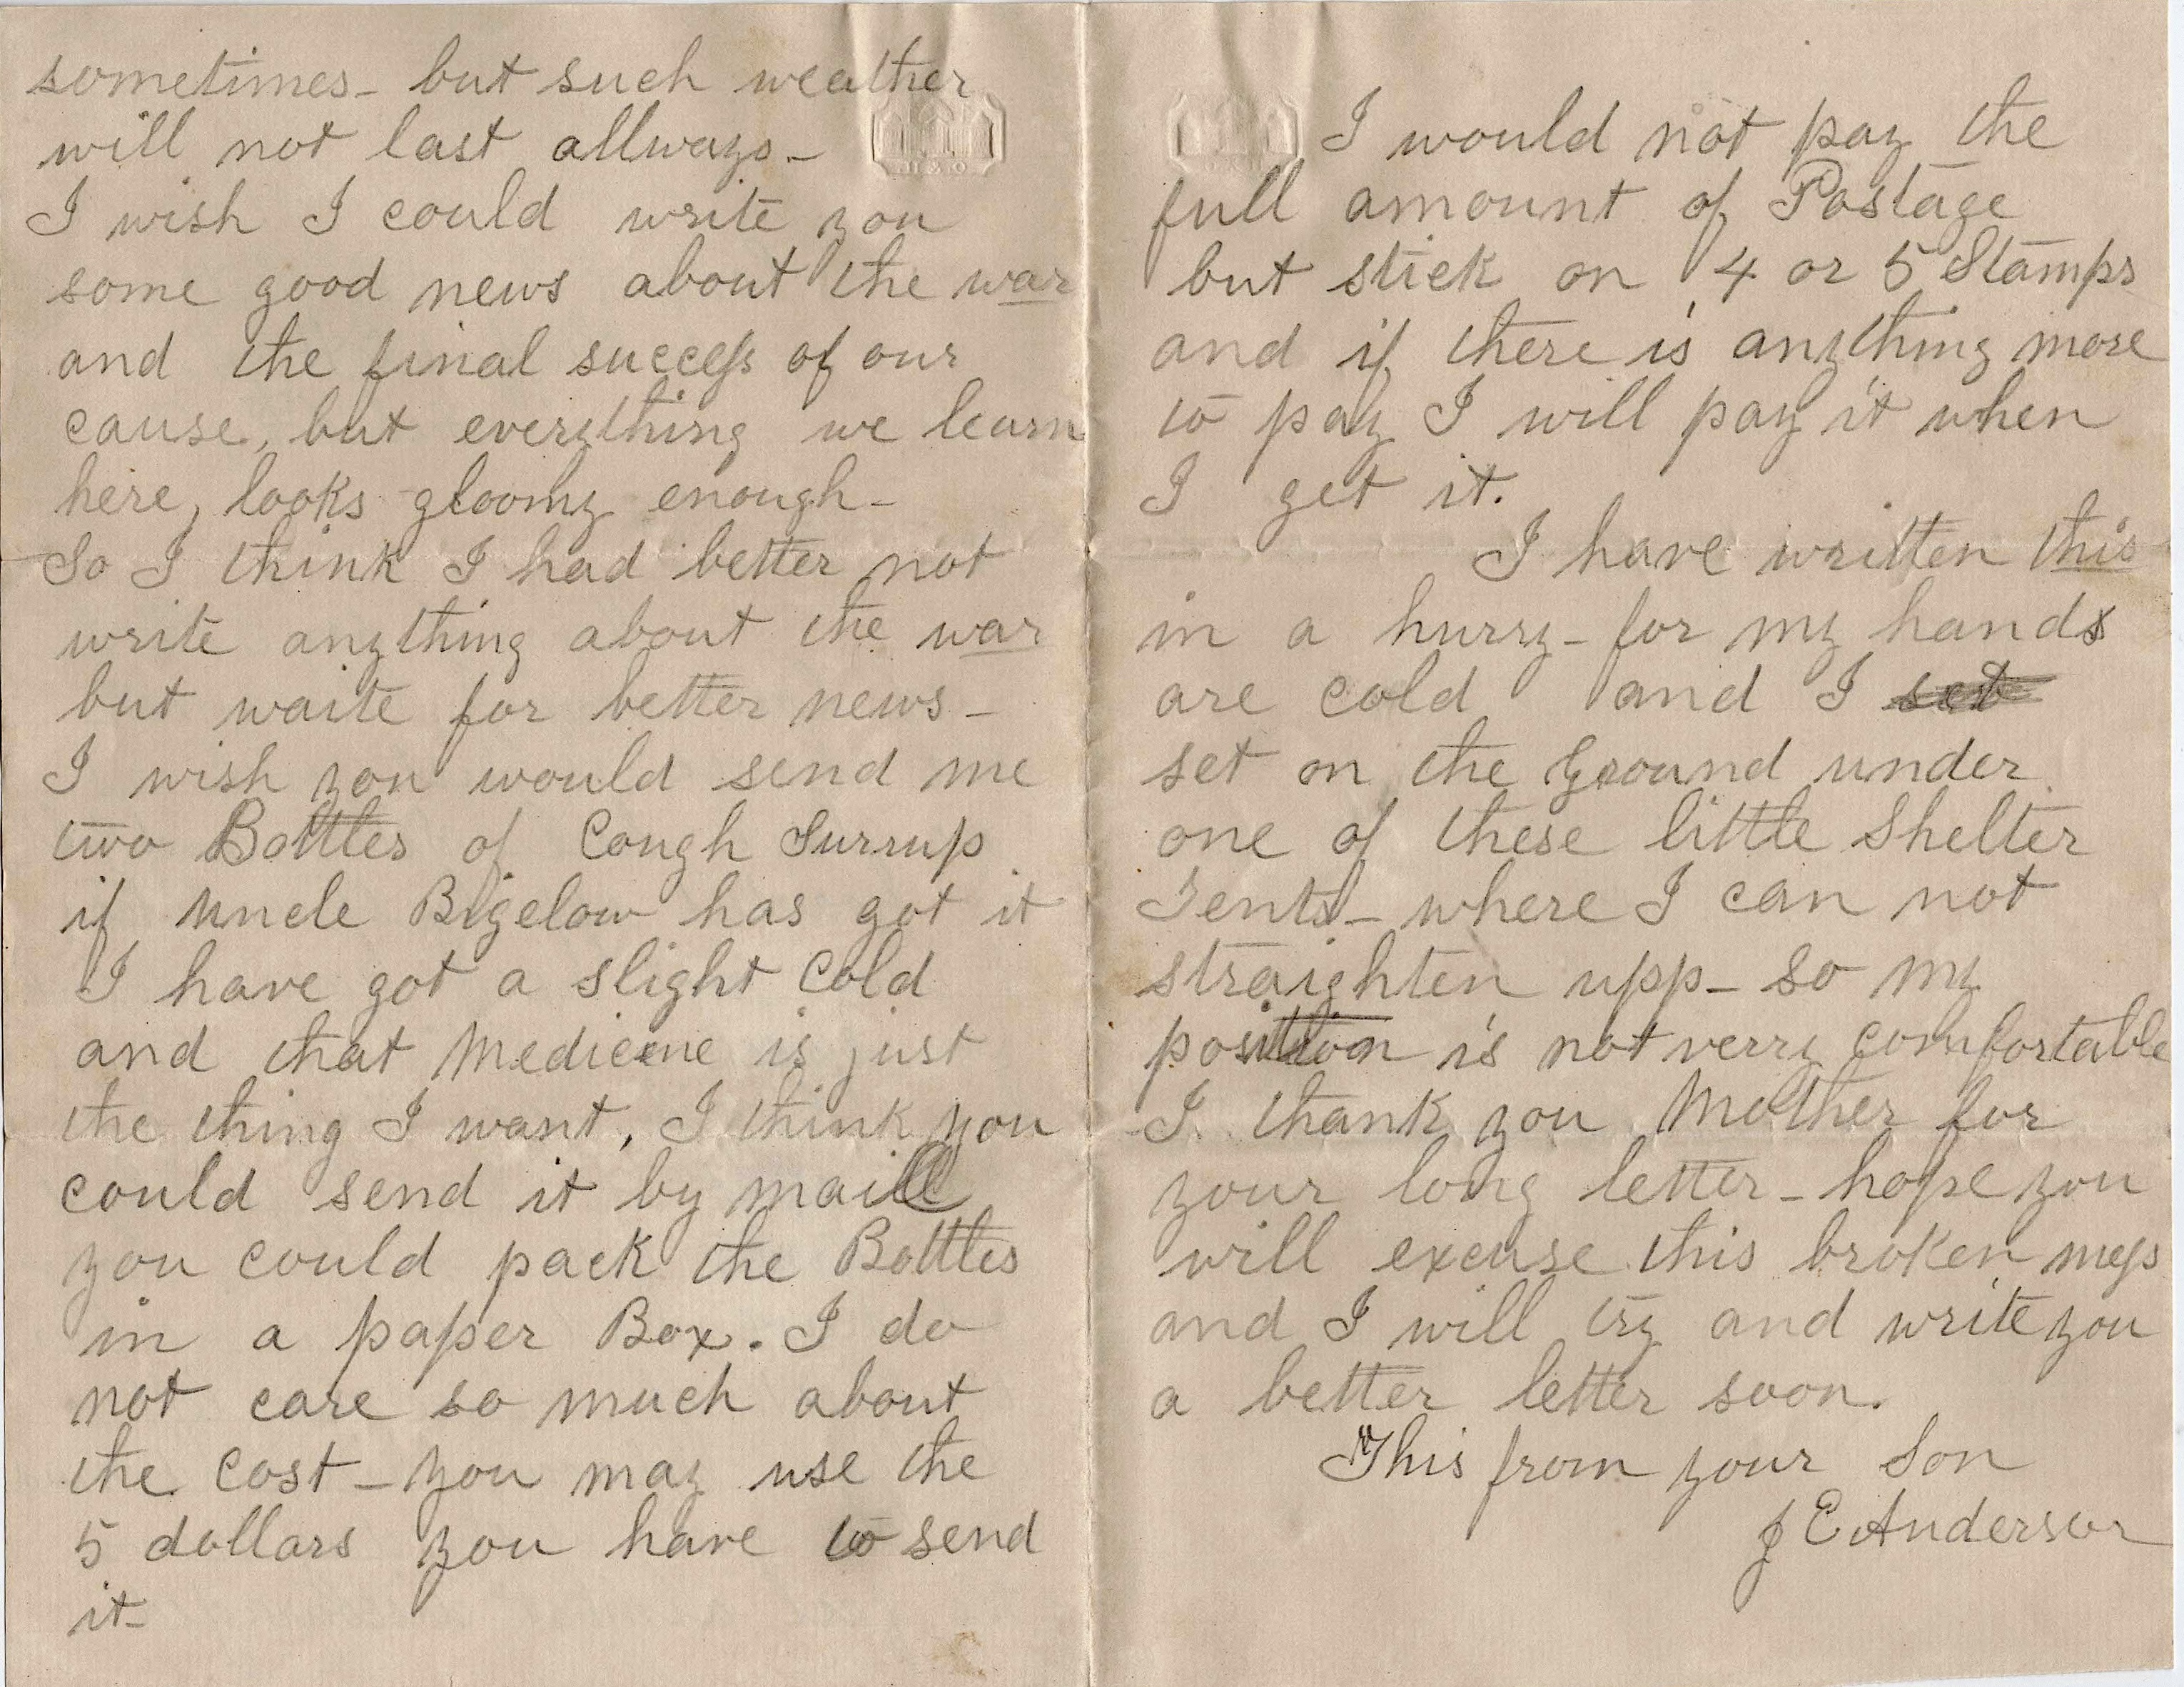 sometimes - but such weather
will not last allways -
I wish I could write you
some good news about the war
and the final success of our
cause, but everything we learn
here, looks gloomy enough -
So I think I had better not
write anything about the war
but waite for better news -
I wish you would send me
two Bottles of Cough Surrup
if Uncle Bigelow has got it
I have got a slight Cold
and that Medicene is just
the thing I want, I think you
could send it by maill
you could pack the Bottles
in a paper Box. I do
not care so much about
the Cost - you may use the
5 dollars you have to send
it -
I would not pay the
full amount of Postage
but stick on 4 or 5 Stamps
and if there is anything more
to pay I will pay it when
I get it.
I have written this
in a hurry - for my hands
are cold and I set
set on the Ground under
one of these little Shelter
Tents - where I can not
straighten upp - so my
position is not verry comfortable
I thank you Mother for
your long letter - hope you
will excuse this broken mess
and I will try and write you
a better letter soon.
This from your Son
J E Anderson